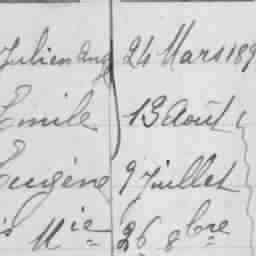 Julien Aug 24 Mars 189
Emile 13 Août
Eugène 9 Juillet
Mie 26 8bre